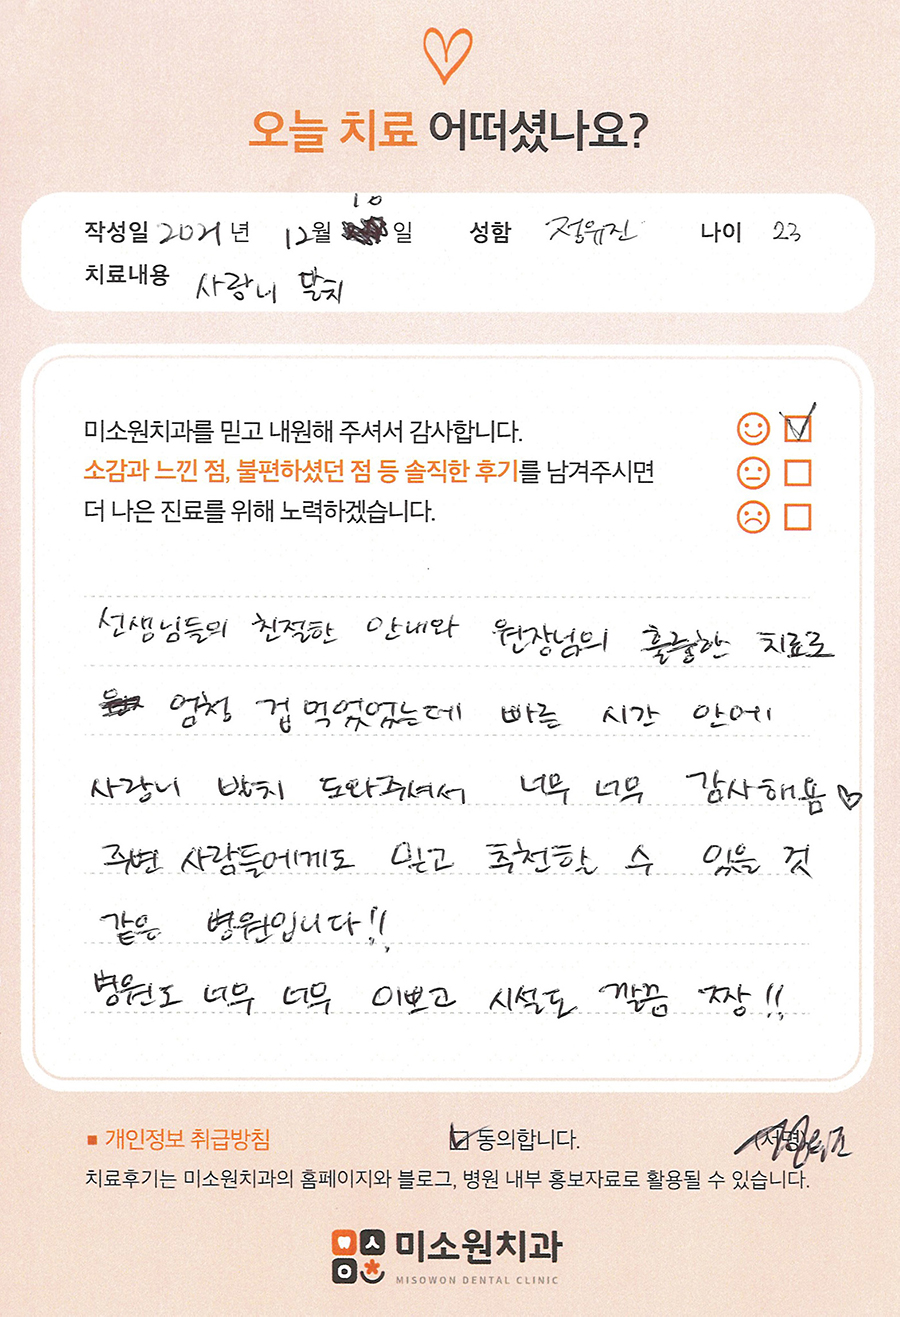 오늘 치료 어떠셨나요?
작성일 2021년 12월 10일 성함 정유진 나이 23
치료내용 사랑니 발치
미소원치과를 믿고 내원해 주셔서 감사합니다.
소감과 느낀 점, 불편하셨던 점 등 솔직한 후기를 남겨주시면
더 나은 진료를 위해 노력하겠습니다.
선생님들의 친절한 안내와 원장님의 훌륭한 치료로
엄청 겁먹었었는데 빠른 시간 안에
사랑니 발치 도와주셔서 너무 너무 감사해욤♡
주변 사람들에게도 믿고 추천할 수 있을 것
같은 병원입니다!!
병원도 너무 너무 이쁘고 시설도 깔끔 짱!!
■ 개인정보 취급방침 동의합니다. (서명)
치료후기는 미소원치과의 홈페이지와 블로그, 병원 내부 홍보자료로 활용될 수 있습니다.
미소원치과
MISOWON DENTAL CLINIC